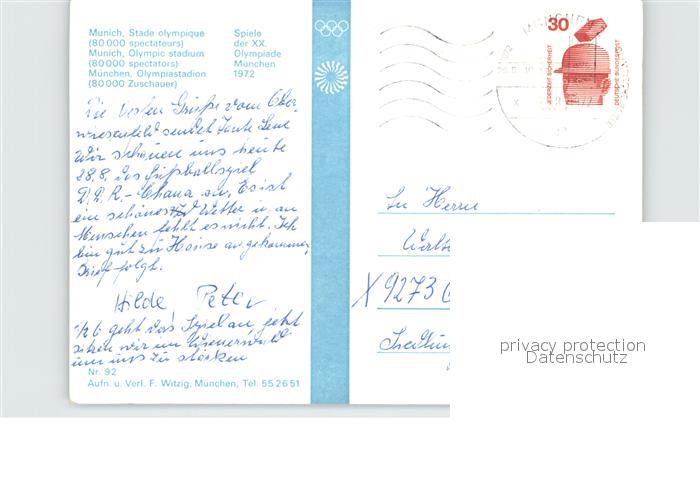 Munich, Stade olympique
(80 000 spectateurs)
Munich, Olympic stadium
(80 000 spectators)
München, Olympiastadion
(80 000 Zuschauer)
Spiele
der XX.
Olympiade
München
1972
Die besten Grüße vom Ober-
wiesenfeld sendet Tante Lene
Wir schauen uns heute
28.8. das Fußballspiel
D.D.R. - Ghana an. Es ist
ein schönes Wetter u. an
Menschen fehlt es nicht. Ich
bin gut zu Hause angekommen,
Brief folgt.
Hilde Peter
1/2 6 geht das Spiel an, jetzt
sitzen wir im Wienerwald
um uns zu stärken
Nr. 92
Aufn. u. Verl. F. Witzig, München, Tel. 55 26 51
MÜNCHEN
30
JEDERZEIT SICHERHEIT
DEUTSCHE BUNDESPOST
Herrn
X 9273
privacy protection
Datenschutz